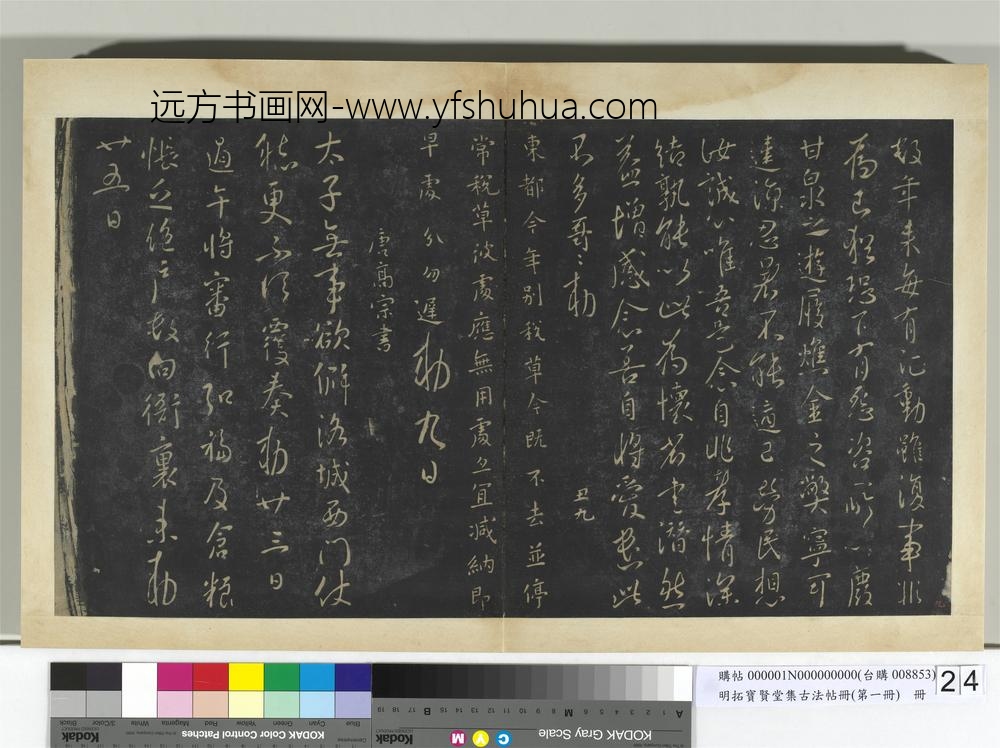 远方书画网-www.yfshuhua.com
數年來每有記動雖復事非
為己猶恐下有怨咨所以廢
甘泉之遊履燋金之弊寧可
違涼忍暑不能適己勞民想
汝誠心唯吾是念自非孝情深
結孰能以此為懷省書潛然
益增感念善自將愛遣此
不多哥哥勅
丑九
東都今年別稅草今既不去並停
常稅草彼處應無用處亦宜減納即
早處分勿遲勅九日
唐高宗書
太子無事欲併洛城西門仗
聽更不須覆奏勅廿三日
過午將審行弘福及倉糧
悵之絶戶故向衙裏來勅
廿五日
購帖 000001N000000000(台購 008853)
明拓寶賢堂集古法帖冊(第一冊) 冊
24
KODAK Color Control Patches
Blue Cyan Green Yellow Red Magenta White 3/Color Black
KODAK Gray Scale
C Y M
Kodak
A 1 2 3 4 5 6 M 8 9 10 11 12 13 14 15 B 17 18 19